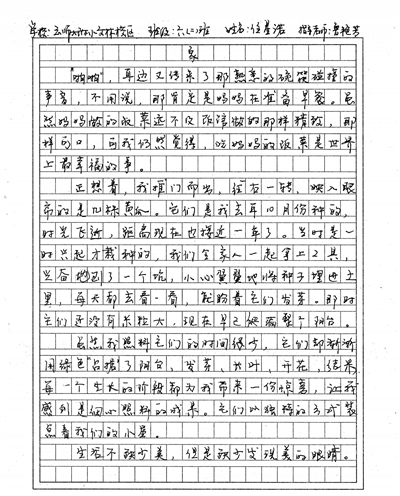 学校：云师大附小文林校区 班级：六（二）班 姓名：任 指导老师：
家
“啪啪”，耳边又传来了那熟悉的碗筷碰撞的
声音，不用说，那肯定是妈妈在准备早餐。虽
然妈妈做的饭菜远不及饭店做的那样精致，那
样可口，可我仍然觉得，吃妈妈的饭菜是世界
上最幸福的事。
正想着，我推门而出，往右一转，映入眼
帘的是几棵黄瓜。它们是我去年10月份种的，
时光飞逝，距离现在也接近一年了。当时是一
时兴起才栽种的，我们全家人一起拿上工具，
兴奋地包了一个坑，小心翼翼地将种子埋进土
里，每天都去看一看，能盼着它们发芽。那时
它们还没有米粒大，现在早已铺满整个阳台。
虽然我照料它们的时间很少，它们却渐渐
用绿色占据了阳台，发芽、长叶、开花、结果，
每一个生长的阶段都为我带来一份惊喜，让我
感到是细心照料的成果。它们以独特的方式装
点着我们的小屋。
生活不缺少美，但是缺少发现美的眼睛。